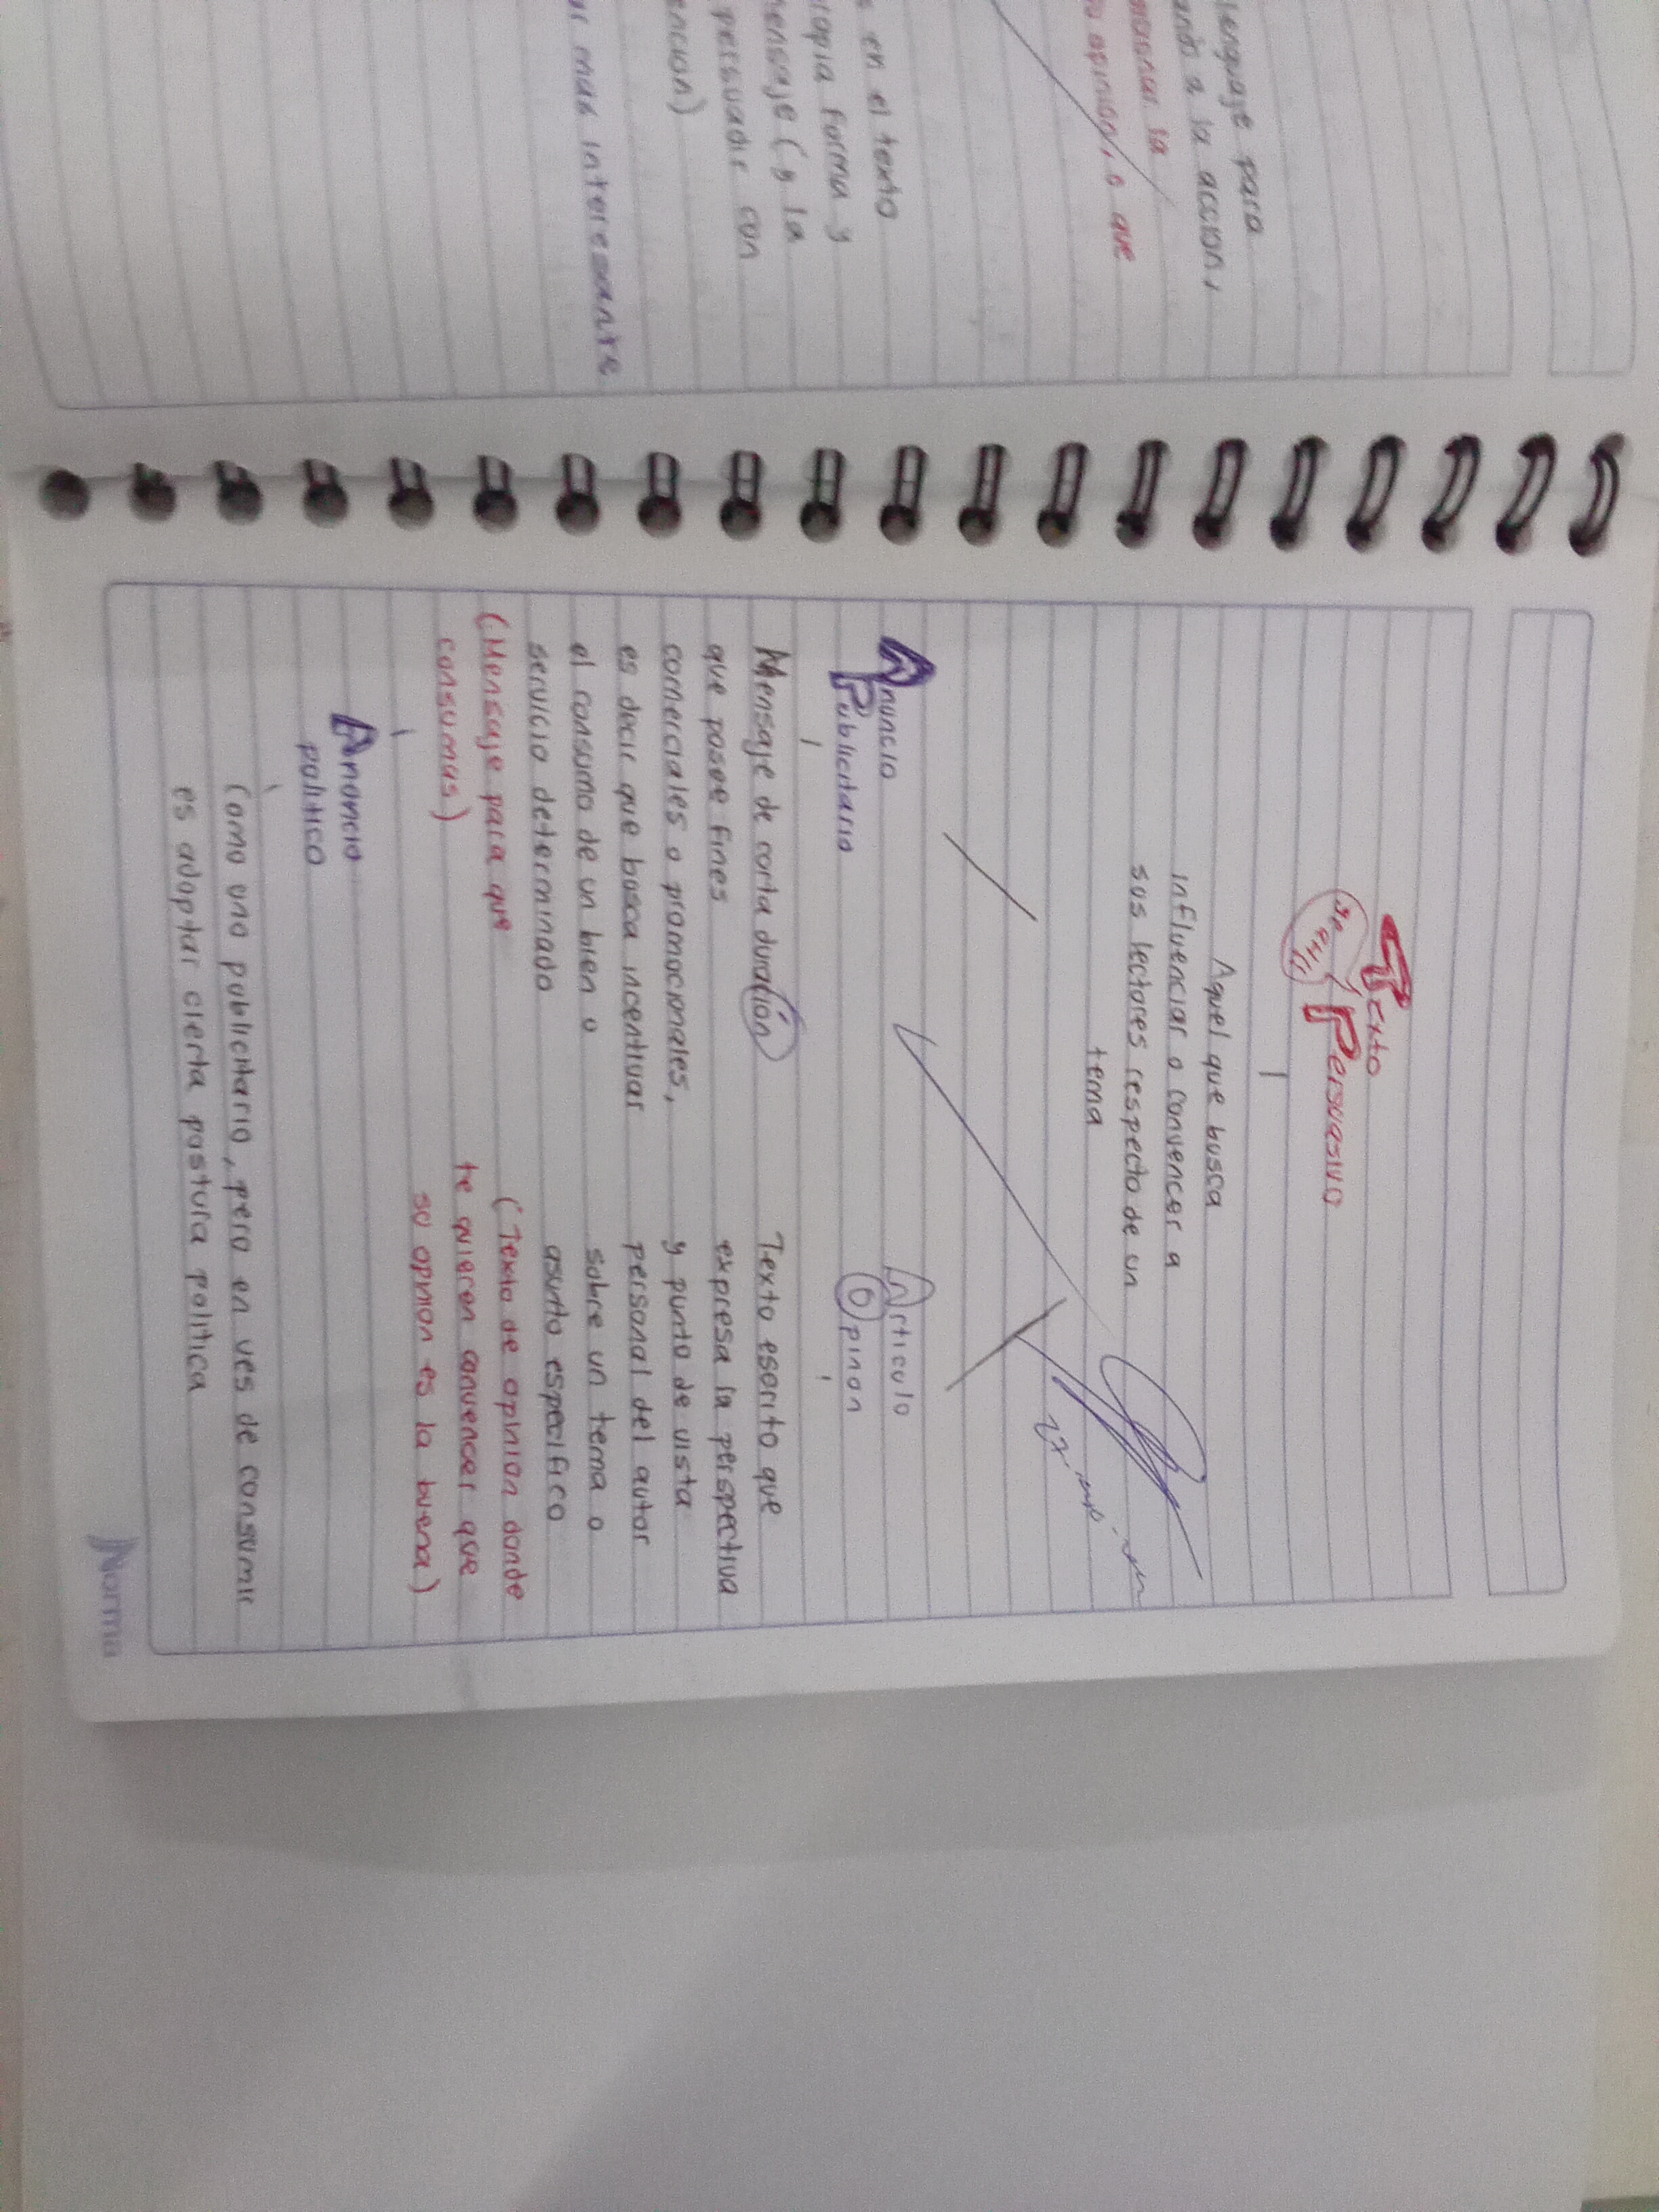 lenguaje para
ando a la accion,
la
opinion, o que
en el texto
ropia forma y
mensaje (y la
persuadir con
encion)
ar mas interesante
Texto
Persuasivo
Aquel que busca
influenciar o convencer a
sus lectores respecto de un
tema
Anuncio
Publicitario
Mensaje de corta duración
que posee fines
comerciales o promocionales,
es decir que busca incentivar
el consumo de un bien o
servicio determinado
(Mensaje para que
consumas)
Anuncio
politico
Como uno publicitario, pero en ves de consumir
es adoptar cierta postura politica
Articulo
Opinion
Texto escrito que
expresa la perspectiva
y punto de vista
personal del autor
sobre un tema o
asunto especifico
(Texto de opinion donde
te quieren convencer que
su opinion es la buena)
Norma